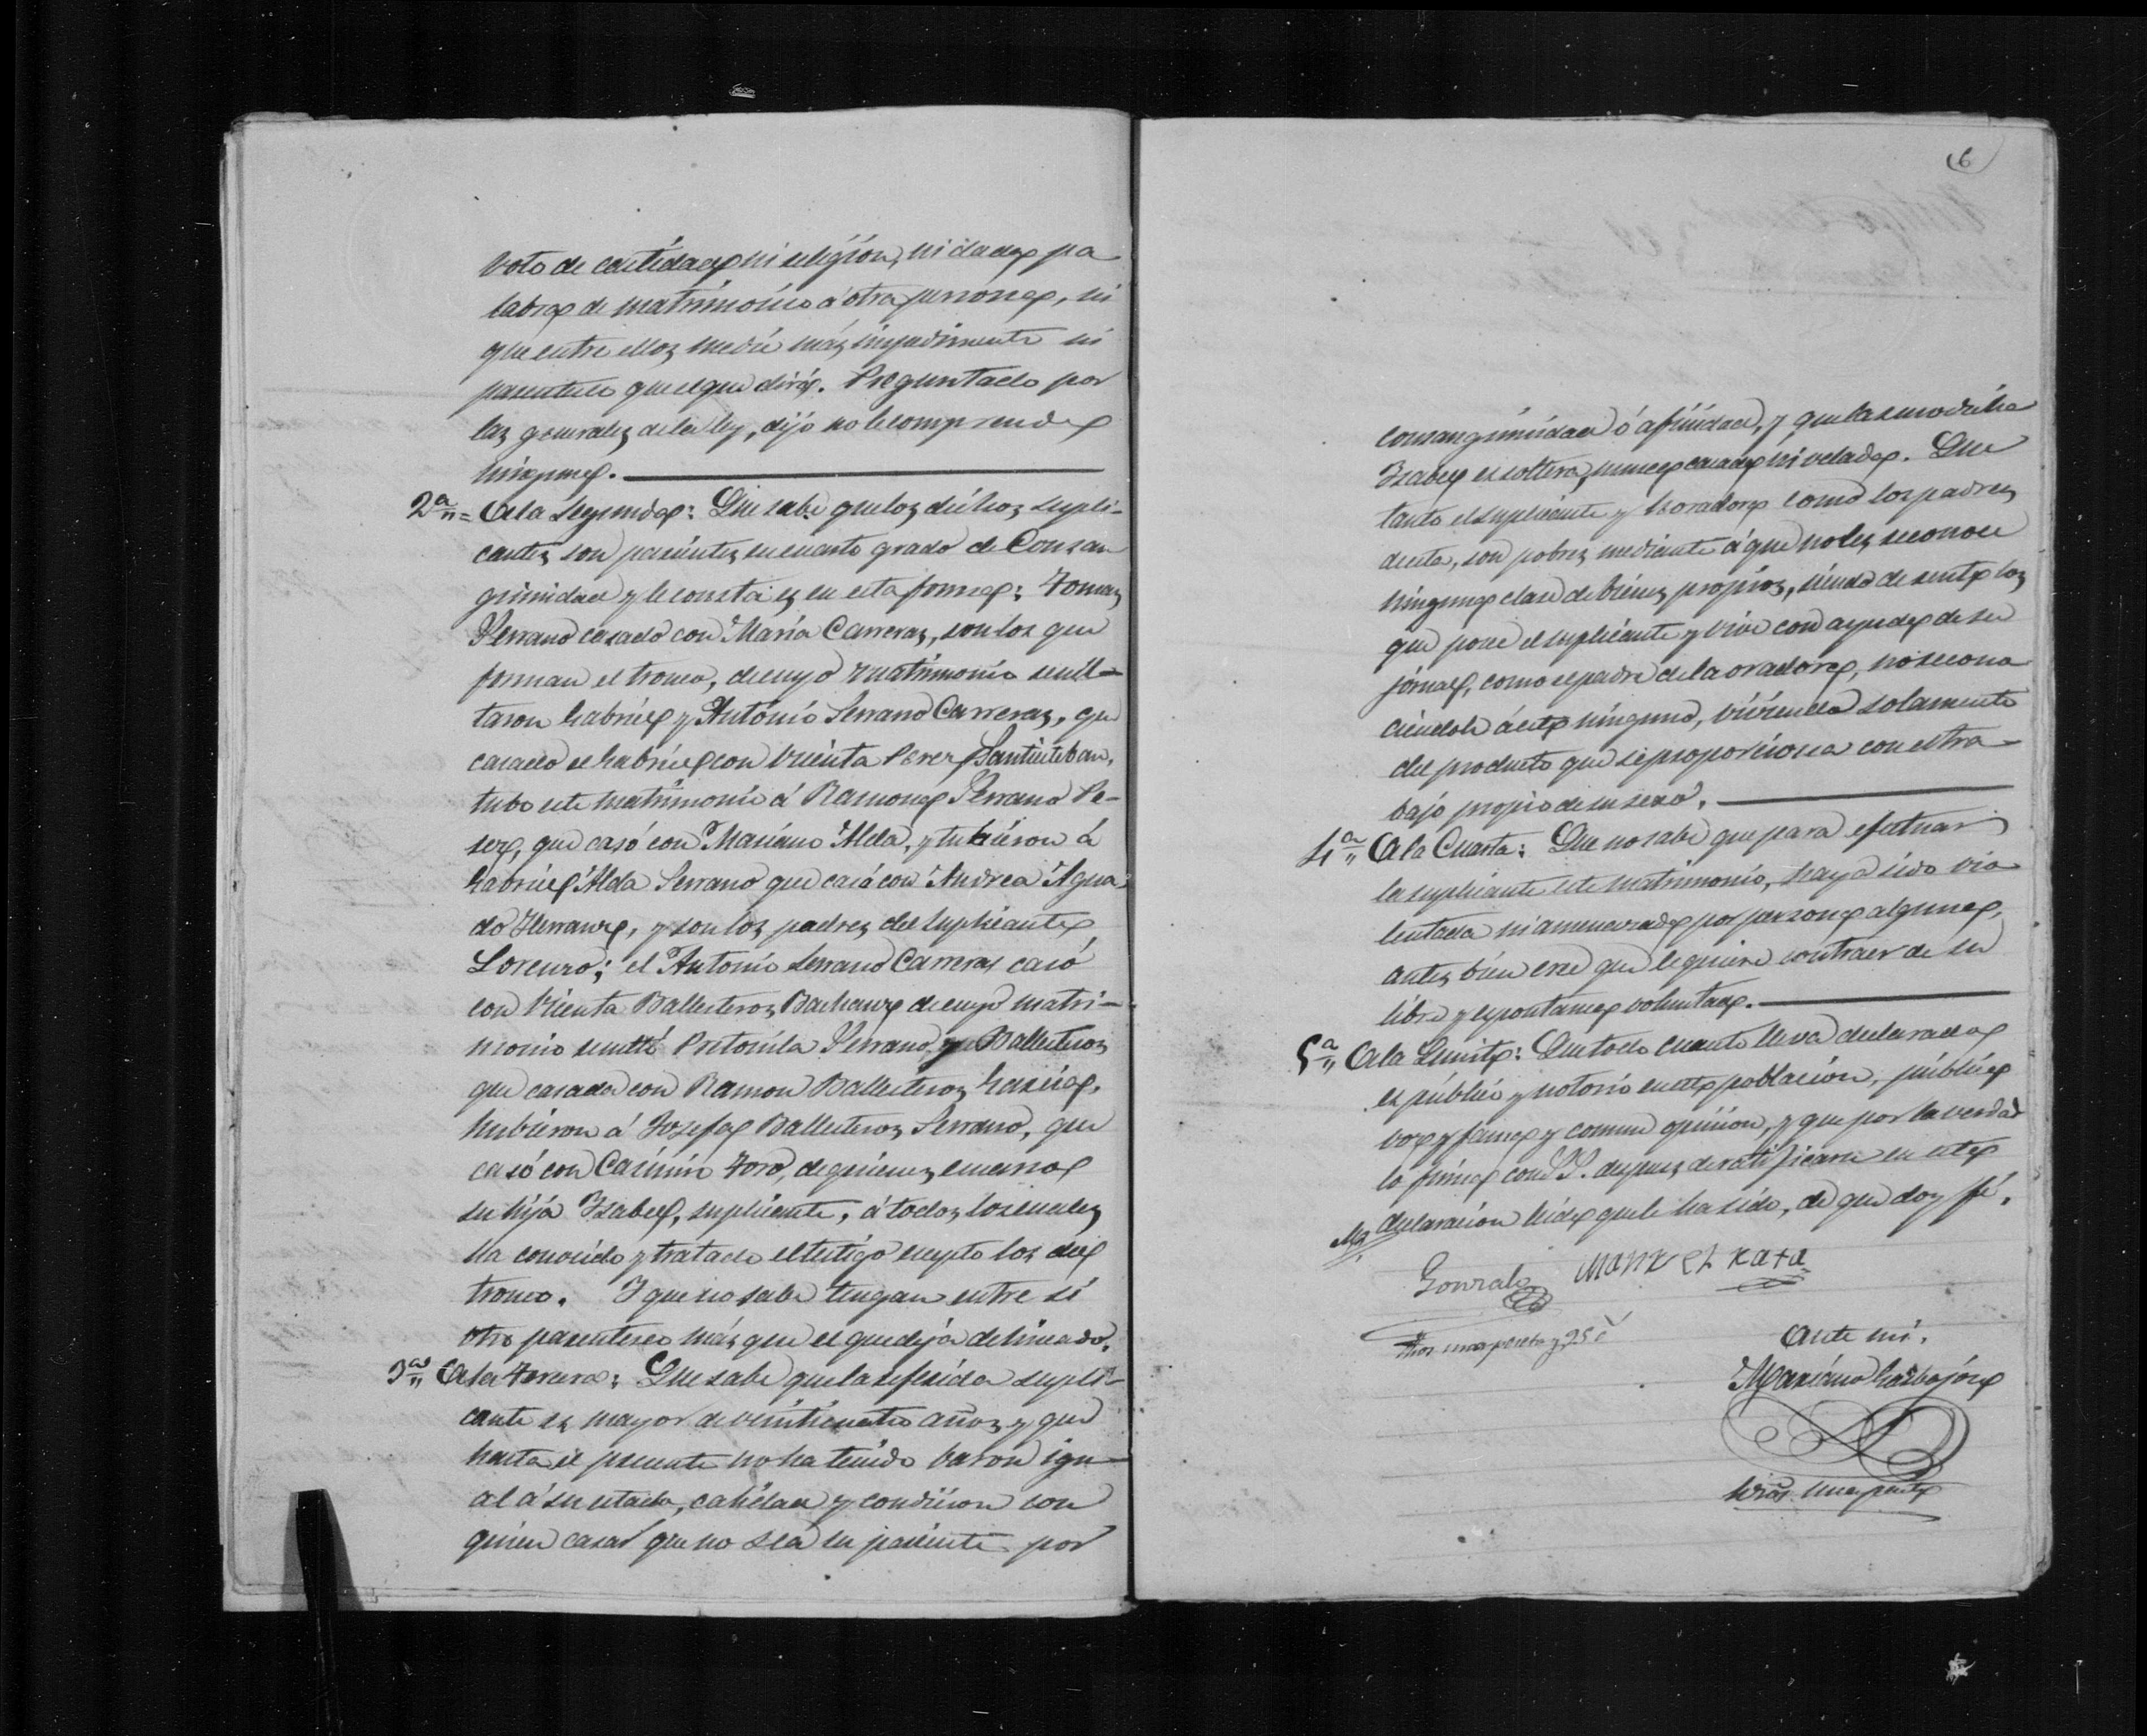 voto de castidad ni religion, ni dado pa
labra de matrimonio á otra persona, ni
que entre ellos medie más impedimento ni
parentesco que el que dirá. Preguntado por
las generales de la ley, dijo no le comprende
ninguna.
2ª = A la Segunda: Que sabe que los dichos supli-
cantes son parientes en cuarto grado de Consan
guinidad y le consta es en esta forma: Tomas
Serrano casado con María Carreras, son los que
forman el tronco, de cuyo matrimonio resul-
taron Gabriel y Antonio Serrano Carreras, que
casado el Gabriel con Vicenta Perez Santiesteban,
tubo este matrimonio á Ramona Serrano Pe-
rez, que casó con Mariano Alda, y tubieron á
Gabriel Alda Serrano que casó con Andrea Agua
do Herranz, y son los padres del suplicante
Lorenzo; el Antonio Serrano Carreras casó
con Vicenta Ballesteros de cuyo matri-
monio resultó Pretonila Serrano y Ballesteros
que casada con Ramon Ballesteros Garcia,
hubieron á Josefa Ballesteros Serrano, que
casó con Casimiro Toro, de quienes emana
su hija Isabel, suplicante, á todos los cuales
ha conocido y tratado el testigo excepto los del
tronco. Y que no sabe tengan entre si
otro parentesco más que el que deja delineado.
3ª A la Tercera: Que sabe que la referida supli-
cante es mayor de veinticuatro años y que
hasta el presente no ha tenido varon igu-
al á su estado, calidad y condicion con
quien casar que no sea su pariente por
6
consanguinidad ó afinidad, y que la susodicha
Isabel es soltera, nunca casada ni velada. Que
tanto el suplicante y la oradora como los padres
de esta, son pobres mediante á que no les reconoce
ninguna clase de bienes propios, siendo de renta los
que posee el suplicante y vive con ayuda de su
jornal, como el padre de la oradora, no recono
ciéndole á esta ninguno, viviendo solamente
del producto que se proporciona con el tra-
bajo propio de su sexo.
4ª A la Cuarta: Que no sabe que para efectuar
la suplicante este matrimonio, haya sido vio
lentada ni amenazada por persona alguna,
antes bien cree que le quiere contraer de su
libre y espontanea voluntad.
5ª A la Quinta: Que todo cuanto lleva declarado
es público y notorio en esta poblacion, pública
voz y fama y comun opinion, y que por la verdad
lo firma con S.S. despues de ratificarse en esta
declaracion leida que le ha sido, de que doy fé.
Gonzalo Manuel Rata
una peseta y 25 c
Ante mi.
Mariano Carbajosa
una peseta